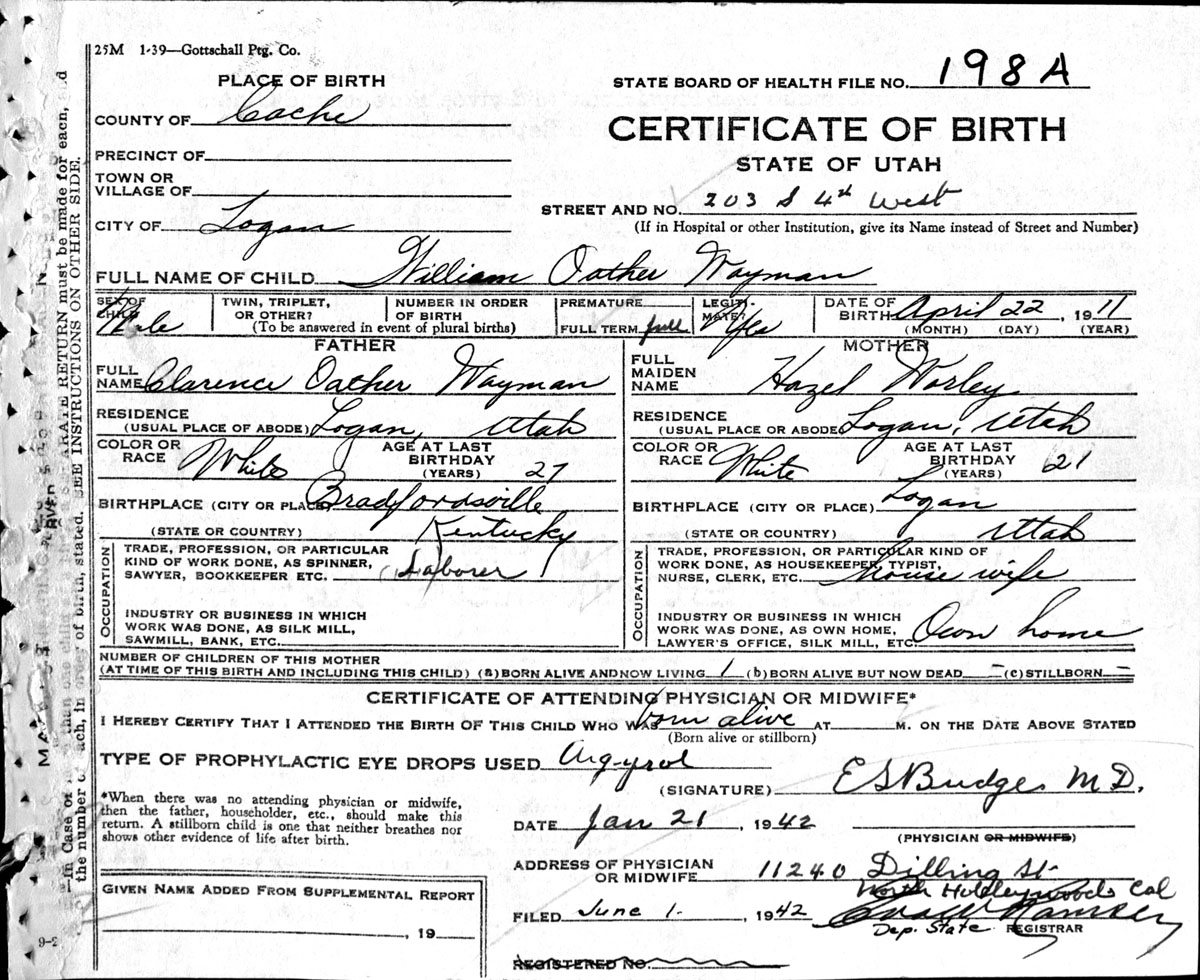 25M 1-39—Gottschall Ptg. Co.
PLACE OF BIRTH
STATE BOARD OF HEALTH FILE NO. 198A
COUNTY OF Cache
CERTIFICATE OF BIRTH
PRECINCT OF
STATE OF UTAH
TOWN OR
VILLAGE OF
STREET AND NO. 203 S 4th West
CITY OF Logan
(If in Hospital or other Institution, give its Name instead of Street and Number)
FULL NAME OF CHILD William Oather Wayman
SEX OF CHILD Male
TWIN, TRIPLET, OR OTHER?
NUMBER IN ORDER OF BIRTH
(To be answered in event of plural births)
PREMATURE
FULL TERM full
LEGITIMATE? Yes
DATE OF BIRTH April 22, 1911
(MONTH) (DAY) (YEAR)
FATHER
FULL NAME Clarence Oather Wayman
RESIDENCE
(USUAL PLACE OF ABODE) Logan, Utah
COLOR OR RACE White
AGE AT LAST BIRTHDAY (YEARS) 27
BIRTHPLACE (CITY OR PLACE) Bradfordsville
(STATE OR COUNTRY) Kentucky
OCCUPATION
TRADE, PROFESSION, OR PARTICULAR
KIND OF WORK DONE, AS SPINNER,
SAWYER, BOOKKEEPER ETC. Laborer
INDUSTRY OR BUSINESS IN WHICH
WORK WAS DONE, AS SILK MILL,
SAWMILL, BANK, ETC.
MOTHER
FULL MAIDEN NAME Hazel Worley
RESIDENCE
(USUAL PLACE OR ABODE) Logan, Utah
COLOR OR RACE White
AGE AT LAST BIRTHDAY (YEARS) 21
BIRTHPLACE (CITY OR PLACE) Logan
(STATE OR COUNTRY) Utah
OCCUPATION
TRADE, PROFESSION, OR PARTICULAR KIND OF
WORK DONE, AS HOUSEKEEPER, TYPIST,
NURSE, CLERK, ETC. House wife
INDUSTRY OR BUSINESS IN WHICH
WORK WAS DONE, AS OWN HOME,
LAWYER'S OFFICE, SILK MILL, ETC. Own home
NUMBER OF CHILDREN OF THIS MOTHER
(AT TIME OF THIS BIRTH AND INCLUDING THIS CHILD) (a) BORN ALIVE AND NOW LIVING 1 (b) BORN ALIVE BUT NOW DEAD – (c) STILLBORN –
CERTIFICATE OF ATTENDING PHYSICIAN OR MIDWIFE*
I HEREBY CERTIFY THAT I ATTENDED THE BIRTH OF THIS CHILD WHO WAS born alive AT M. ON THE DATE ABOVE STATED
(Born alive or stillborn)
TYPE OF PROPHYLACTIC EYE DROPS USED Argyrol
(SIGNATURE) E S Budge M D.
*When there was no attending physician or midwife,
then the father, householder, etc., should make this
return. A stillborn child is one that neither breathes nor
shows other evidence of life after birth.
DATE Jan 21, 1942
(PHYSICIAN OR MIDWIFE)
ADDRESS OF PHYSICIAN
OR MIDWIFE 11240 Dilling St
North Hollywood Cal
GIVEN NAME ADDED FROM SUPPLEMENTAL REPORT
, 19
FILED June 1, 1942
Dep. State REGISTRAR
REGISTERED NO.
9-2
the number of each, in order of birth, stated. SEE INSTRUCTIONS ON OTHER SIDE.